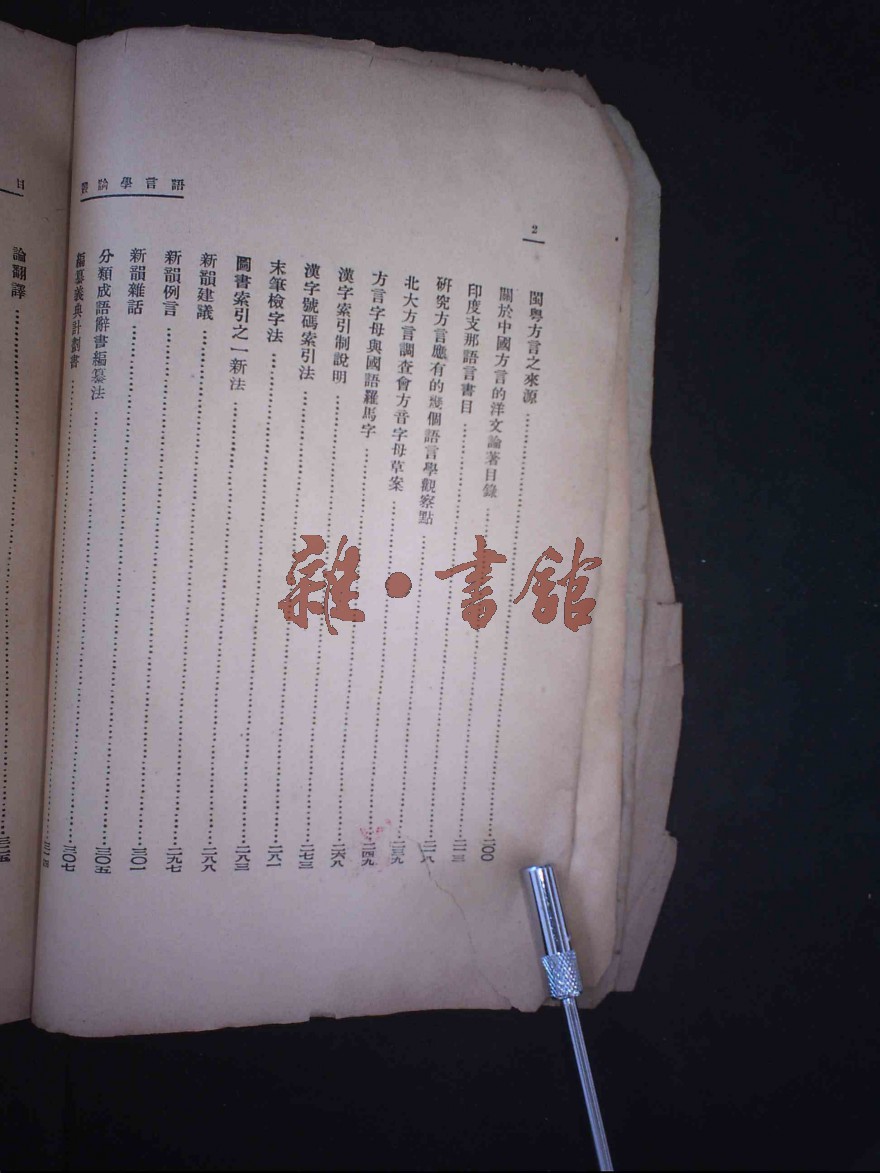 2
語言學論叢
閩粵方言之來源……二〇〇
關於中國方言的洋文論著目錄……二一三
印度支那語言書目……二一八
研究方言應有的幾個語言學觀察點……二三九
北大方言調查會方音字母草案……二四九
方言字母與國語羅馬字……二六八
漢字索引制說明……二七三
漢字號碼索引法……二八一
末筆檢字法……二八三
圖書索引之一新法……二八八
新韻建議……二九七
新韻例言……三〇一
新韻雜話……三〇五
分類成語辭書編纂法……三〇七
編纂義典計劃書……
目
論翻譯……三二五
雜·書館